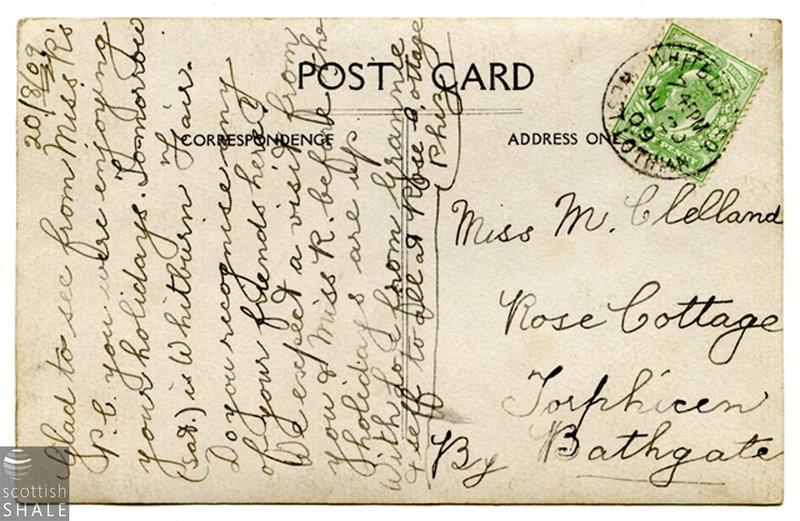 POST CARD
CORRESPONDENCE
ADDRESS ONLY
20/8/09
Glad to see from Miss R's
P.C. you were enjoying
your holidays. Tomorrow
(Sat.) is Whitburn Fair.
Do you recognise any
of your friends here?
We expect a visit from
you & Miss R. before the
holidays are up
With love from Grannie
& self to all at Rose Cottage
Phiz
Miss M. Clelland
Rose Cottage
Torphicen
By Bathgate
WHITBURN
7 45PM
AU 20
09
WEST LOTHIAN
scottish
SHALE